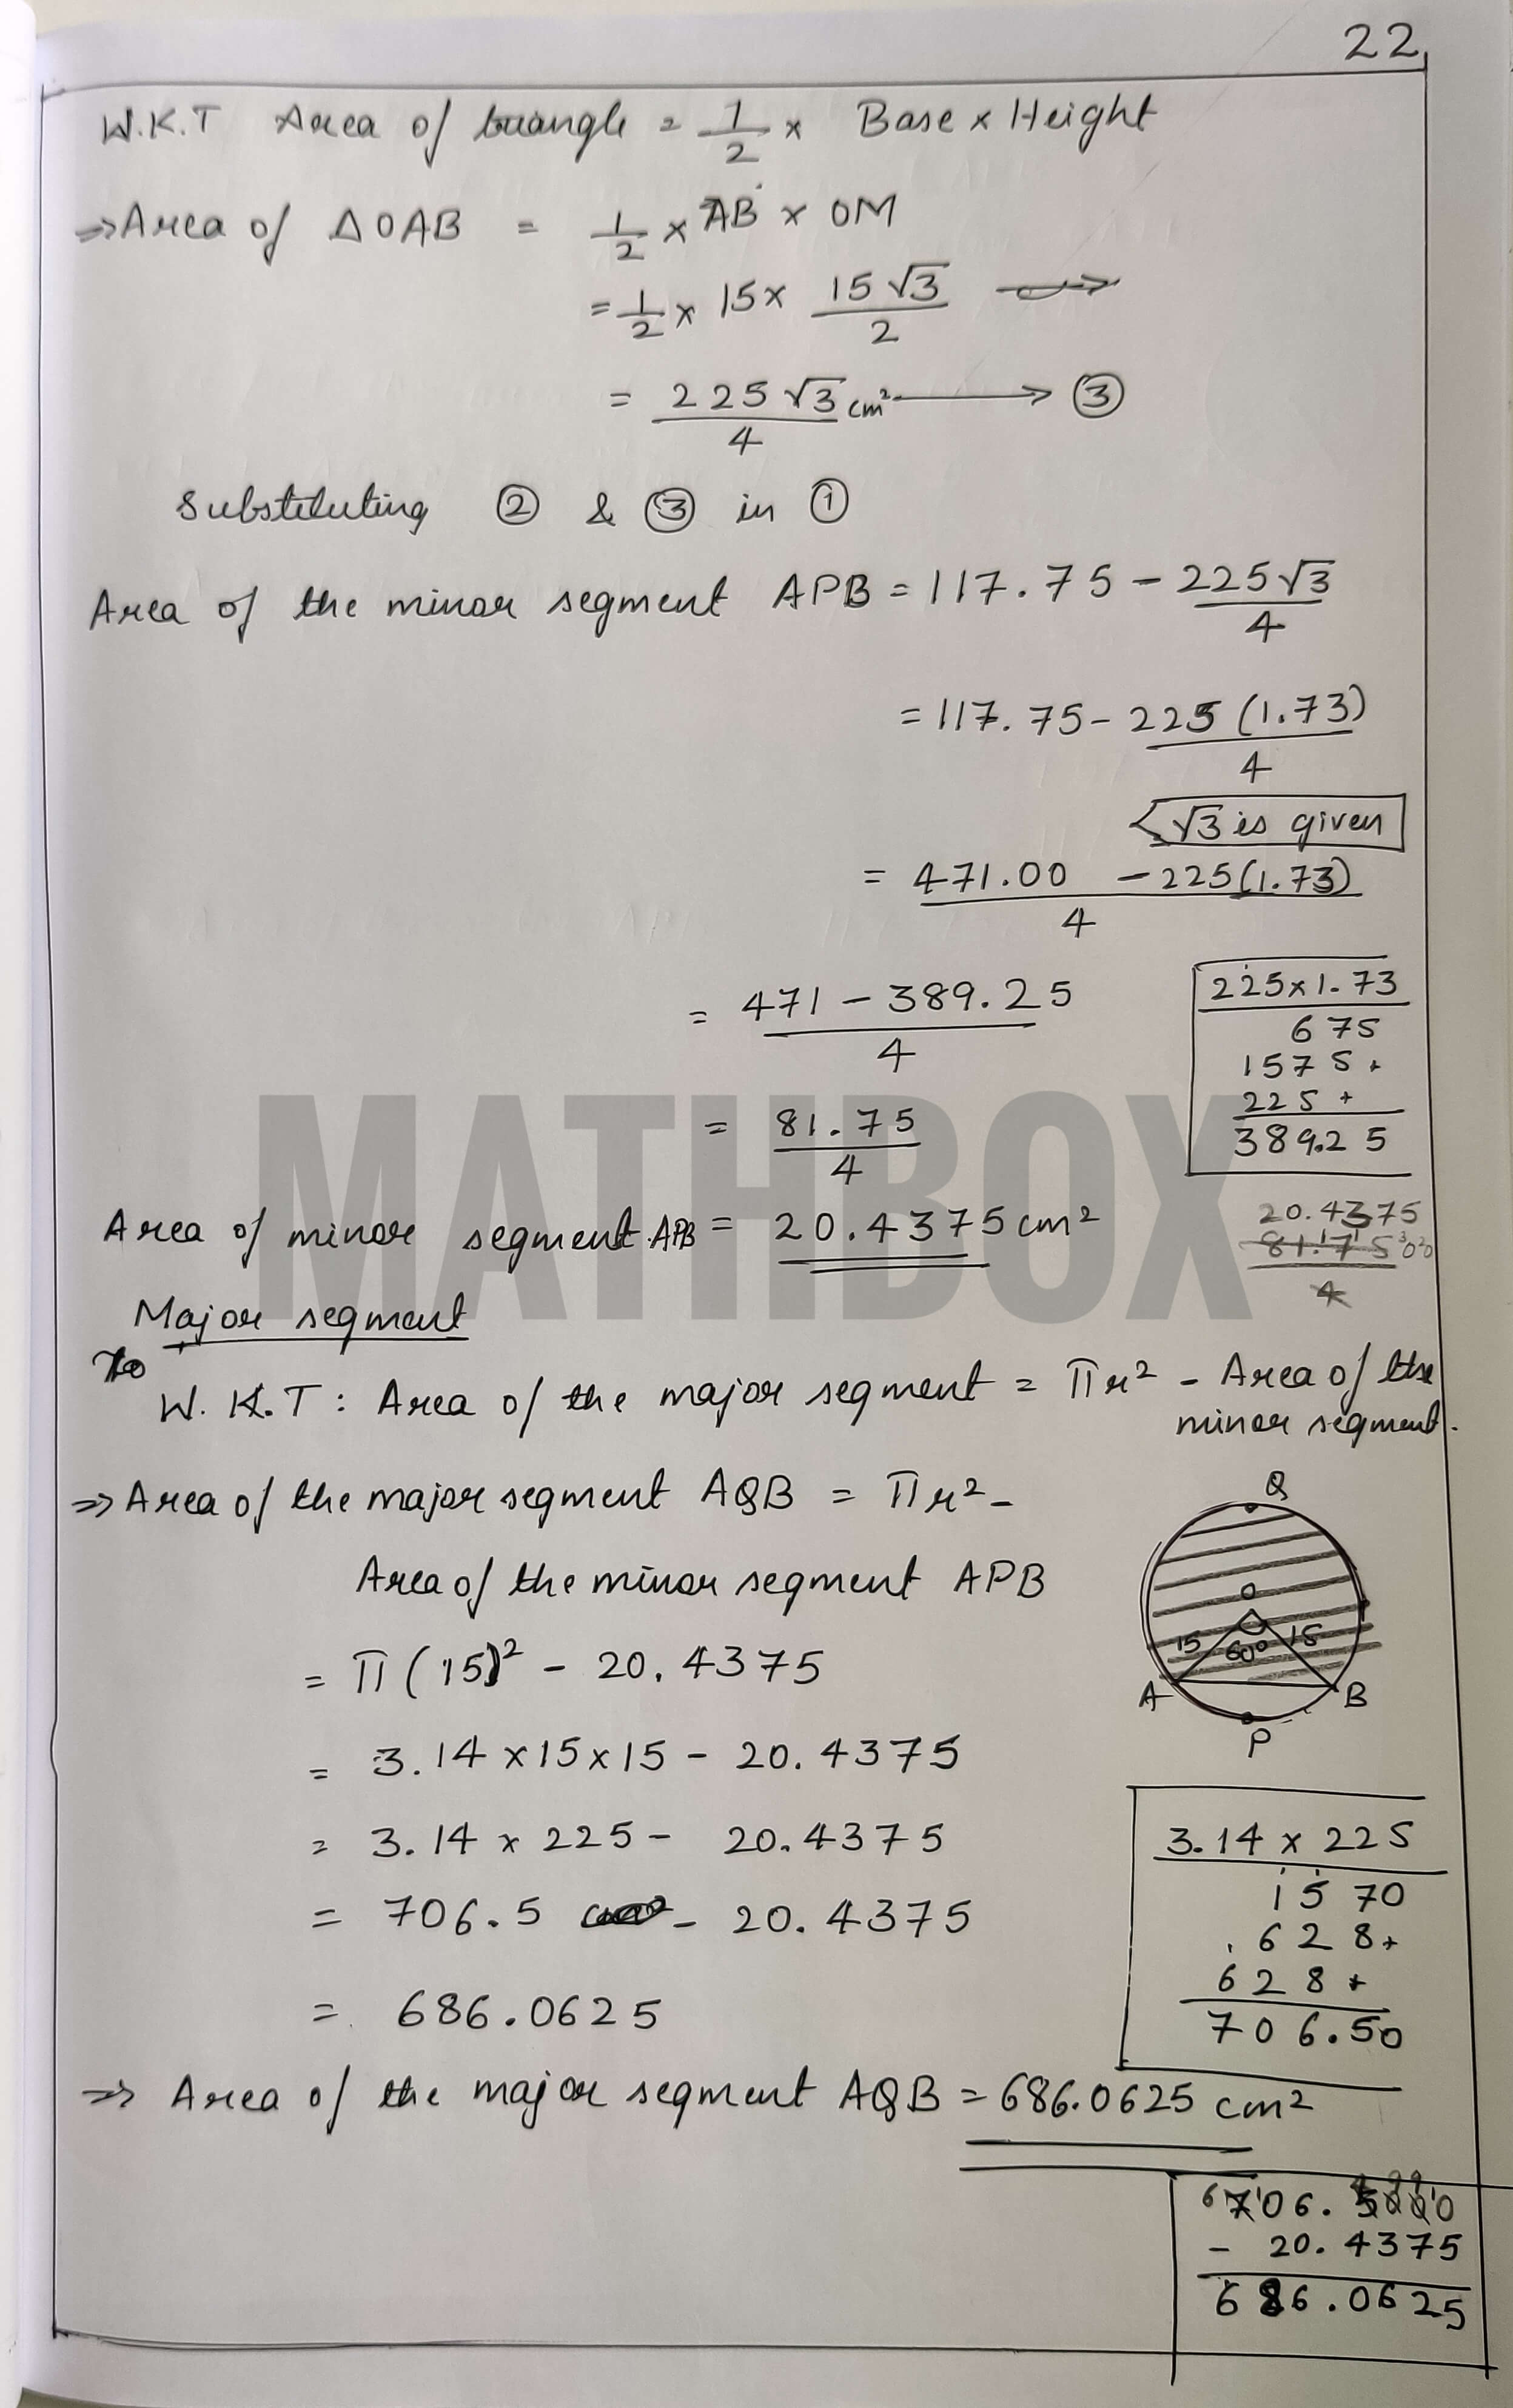 22
W.K.T Area of triangle = 1/2 × Base × Height
⇒ Area of △OAB = 1/2 × AB × OM
= 1/2 × 15 × 15√3/2 →
= 225√3/4 cm² → ③
Substituting ② & ③ in ①
Area of the minor segment APB = 117.75 - 225√3/4
= 117.75 - 225(1.73)/4
√3 is given
= 471.00 - 225(1.73)/4
= 471 - 389.25/4
225 × 1.73
675
1575+
225+
389.25
= 81.75/4
Area of minor segment APB = 20.4375 cm²
20.4375
81.7500
4
Major segment
To
W.K.T : Area of the major segment = πr² - Area of the
minor segment.
⇒ Area of the major segment AQB = πr² -
Area of the minor segment APB
Q
O
15 60° 15
A B
P
= π(15)² - 20.4375
= 3.14 × 15 × 15 - 20.4375
= 3.14 × 225 - 20.4375
= 706.5 - 20.4375
= 686.0625
3.14 × 225
1570
628+
628+
706.50
⇒ Area of the major segment AQB = 686.0625 cm²
706.5000
- 20.4375
686.0625
MATHBOX